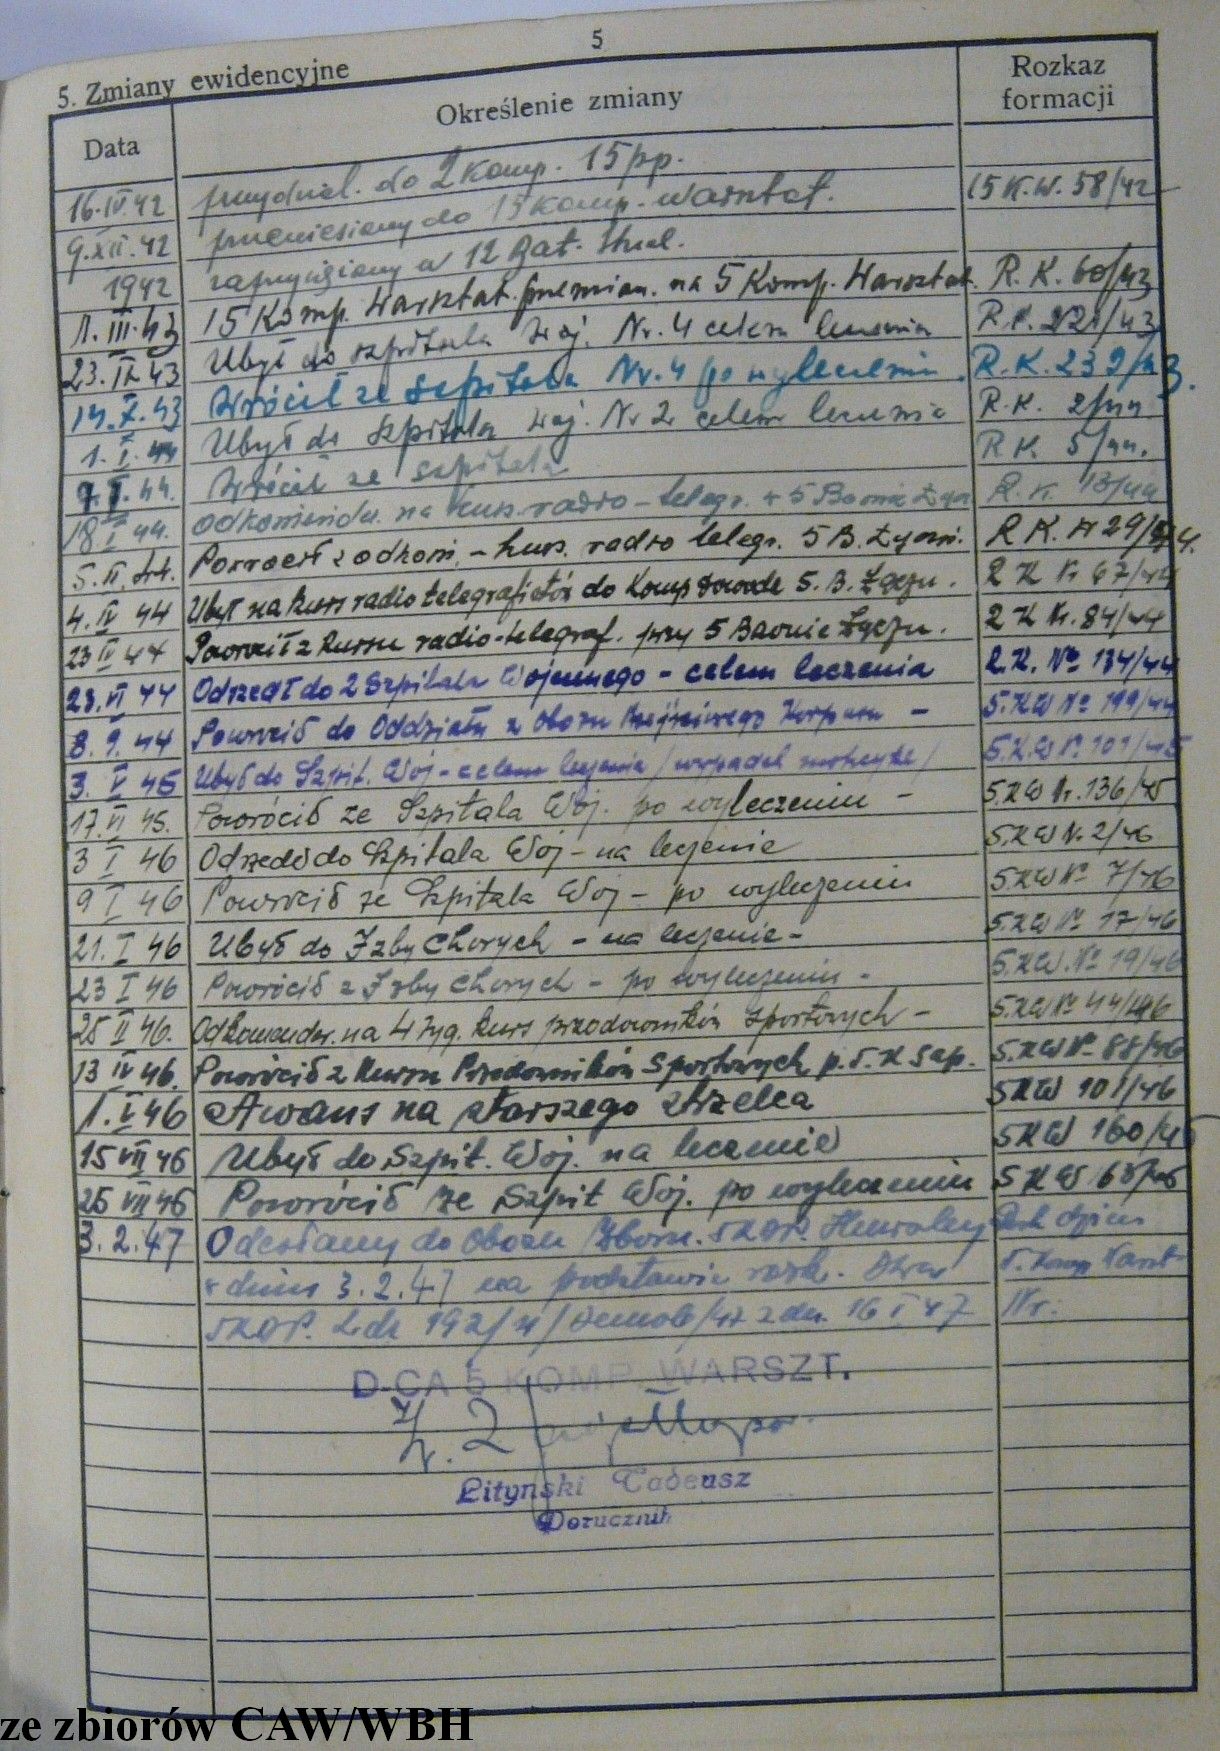 5
5. Zmiany ewidencyjne
Data Określenie zmiany Rozkaz formacji
16.IV.42 przydziel. do 2 Komp. 15 pp.
9.XII.42 przeniesiony do 15 Komp. warsztat. 15 K.W. 58/42
1942 zaprzysiężony w 12 Bat. Strzel.
1.III.43 15 Komp. Warsztat. przemian. na 5 Komp. Warsztat. R.K. 60/43
23.IX.43 Ubył do szpitala Woj. Nr. 4 celem leczenia R.K. 221/43
14.X.43 Wrócił ze szpitala Nr. 4 po wyleczeniu. R.K. 239/43.
1.I.44 Ubył do szpitala Woj. Nr 2 celem leczenia R.K. 2/44
7.I.44. Wrócił ze szpitala R.K. 5/44.
18 I 44. odkomender. na kurs radio-telegr. w 5 Baonie Łącz R.K. 13/44
5.II.44. Powrócił z odkom. - kurs. radio telegr. 5 B. Łączn. R.K. Nr 29/44.
4.IV 44 Ubył na kurs radiotelegrafistów do Komp 5. B. Łączn. R K Nr. 67/44
23 IV 44 Powrócił z kursu radio-telegraf. przy 5 Baonie Łączn. R K Nr. 84/44
23.VI 44 Odszedł do 2 Szpitala Wojennego - celem leczenia R.K. No 134/44
8. 9. 44 Powrócił do Oddziału z Obozu Korpusu - 5.KW No 199/44
3. V 45 Ubył do Szpit. Woj - celem leczenia / wypadek / 5.K.W Nr. 101/45
17.VI 45. Powrócił ze Szpitala Woj. po wyleczeniu - 5.KW Nr. 136/45
3 I 46 Odszedł do Szpitala Woj - na leczenie 5.KW Nr. 2/46
9 I 46 Powrócił ze Szpitala Woj - po wyleczeniu 5.KW No 7/46
21. I 46 Ubył do Izby Chorych - na leczenie - 5.KW No 17/46
23 I 46 Powrócił z Izby Chorych - po wyleczeniu - 5.KW. No 19/46
25 II 46. Odkomender. na 4 tyg. kurs przodowników sportowych - 5.KW No 44/46
13 IV 46. Powrócił z Kursu Przodowników Sportowych p. 5. K Sap. 5.KW No 88/46
1. V 46 Awans na starszego strzelca 5KW 101/46
15 VII 46 Ubył do Szpit. Woj. na leczenie 5KW 160/46
26 VIII 46 Powrócił ze Szpit Woj. po wyleczeniu 5 KW 68/46
3. 2. 47 Odesłany do Obozu 5KDP. dzien
w dniu 3.2.47 na podstawie rozk. D-twa 5. Komp Warszt
5KDP. L.dz 192/ /demob/47 z dn. 16 I 47 Nr.
D-CA 5 KOMP. WARSZT.
Lityński Tadeusz
Porucznik
ze zbiorów CAW/WBH